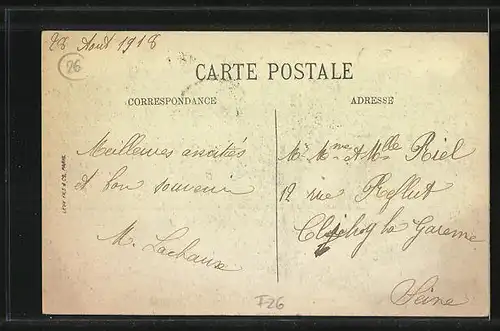 28 Aout 1918
26
CARTE POSTALE
CORRESPONDANCE
ADRESSE
Meilleures amitiés
et bon souvenir
M. Lachaux
Mr Mme & Mlle Riel
12 rue
Clichy la Garenne
Seine
F26